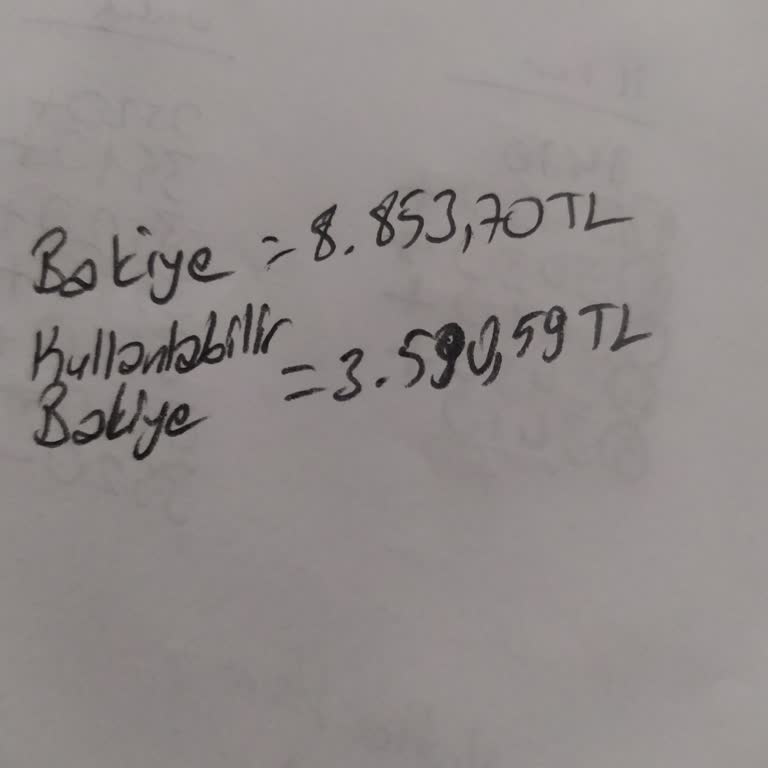 Bakiye = 8.853,70 TL
Kullanılabilir
Bakiye = 3.590,59 TL